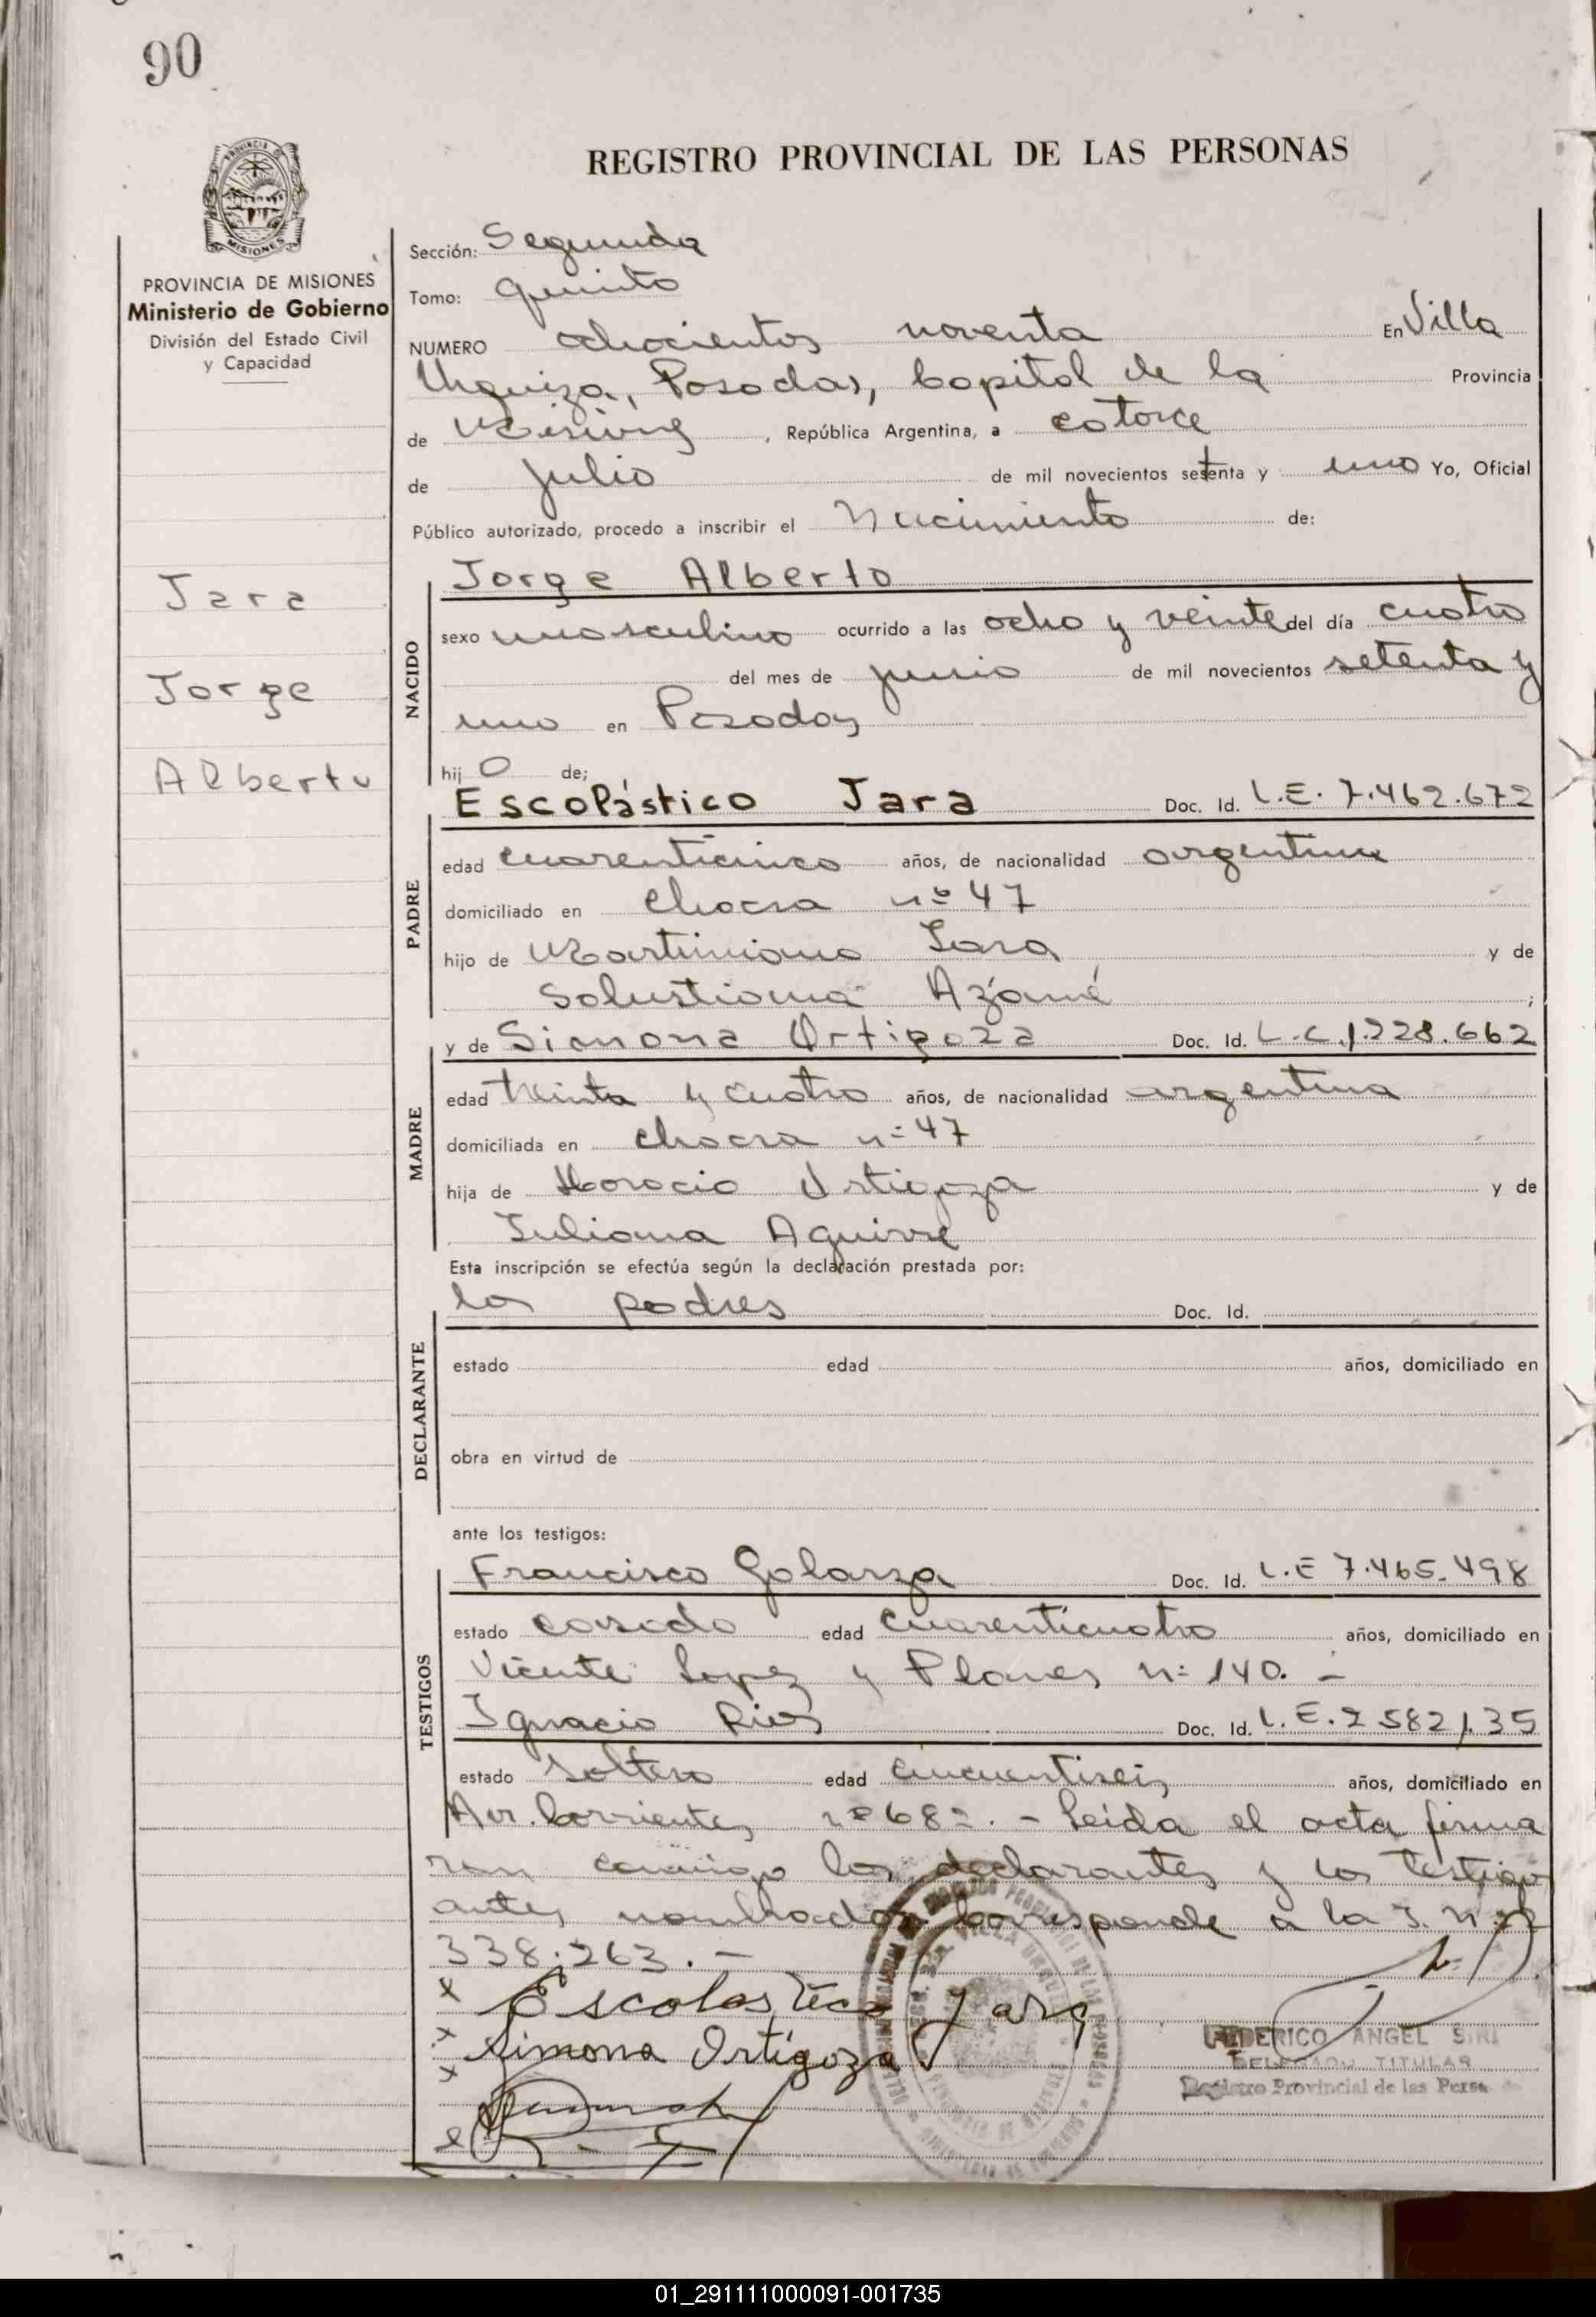 90
REGISTRO PROVINCIAL DE LAS PERSONAS
PROVINCIA DE MISIONES
Ministerio de Gobierno
División del Estado Civil
y Capacidad
Jara
Jorge
Alberto
Sección: Segunda
Tomo: Quinto
NUMERO ochocientos noventa En Villa
Urquiza, Posadas, Capital de la Provincia
de Misiones, República Argentina, a catorce
de Julio de mil novecientos setenta y uno Yo, Oficial
Público autorizado, procedo a inscribir el Nacimiento de:
NACIDO
Jorge Alberto
sexo masculino ocurrido a las ocho y veinte del día cuatro
del mes de junio de mil novecientos setenta y
uno en Posadas
hij o de;
PADRE
Escolástico Jara Doc. Id. L.E. 7.462.672
edad cuarenticinco años, de nacionalidad argentina
domiciliado en chacra nº 47
hijo de Martiniano Jara y de
Salustiana ;
MADRE
y de Simona Ortigoza Doc. Id. L.C. 1.228.662
edad treinta y cuatro años, de nacionalidad argentina
domiciliada en chacra nº 47
hija de Horacio Ortigoza y de
Juliana Aguirre
Esta inscripción se efectúa según la declaración prestada por:
DECLARANTE
los padres Doc. Id.
estado edad años, domiciliado en
obra en virtud de
ante los testigos:
TESTIGOS
Francisco Galarza Doc. Id. L.E 7.465.498
estado casado edad cuarenticuatro años, domiciliado en
Vicente Lopez y Planes nº 140. -
Ignacio Rios Doc. Id. L.E. 2.582.135
estado soltero edad cincuentiseis años, domiciliado en
Av. Corrientes . - Leída el acta firma
ran conmigo los declarantes y los testigos
antes nombrados. Corresponde a la
338.263. -
Escolastico Jara
Simona Ortigoza
FEDERICO ANGEL SIRI
DELEGADO TITULAR
Registro Provincial de las Perso
01_291111000091-001735